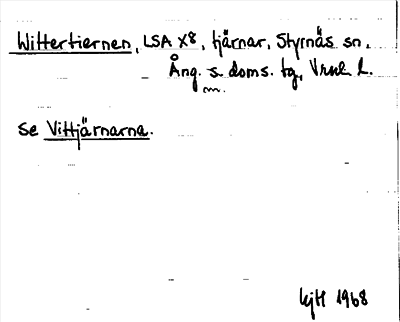 Wittertiernen, LSA X8, tjärnar, Styrnäs sn.
Ång. s. doms. tg, Vrml l.
m.
se Vittjärnarna.
kjH 1968